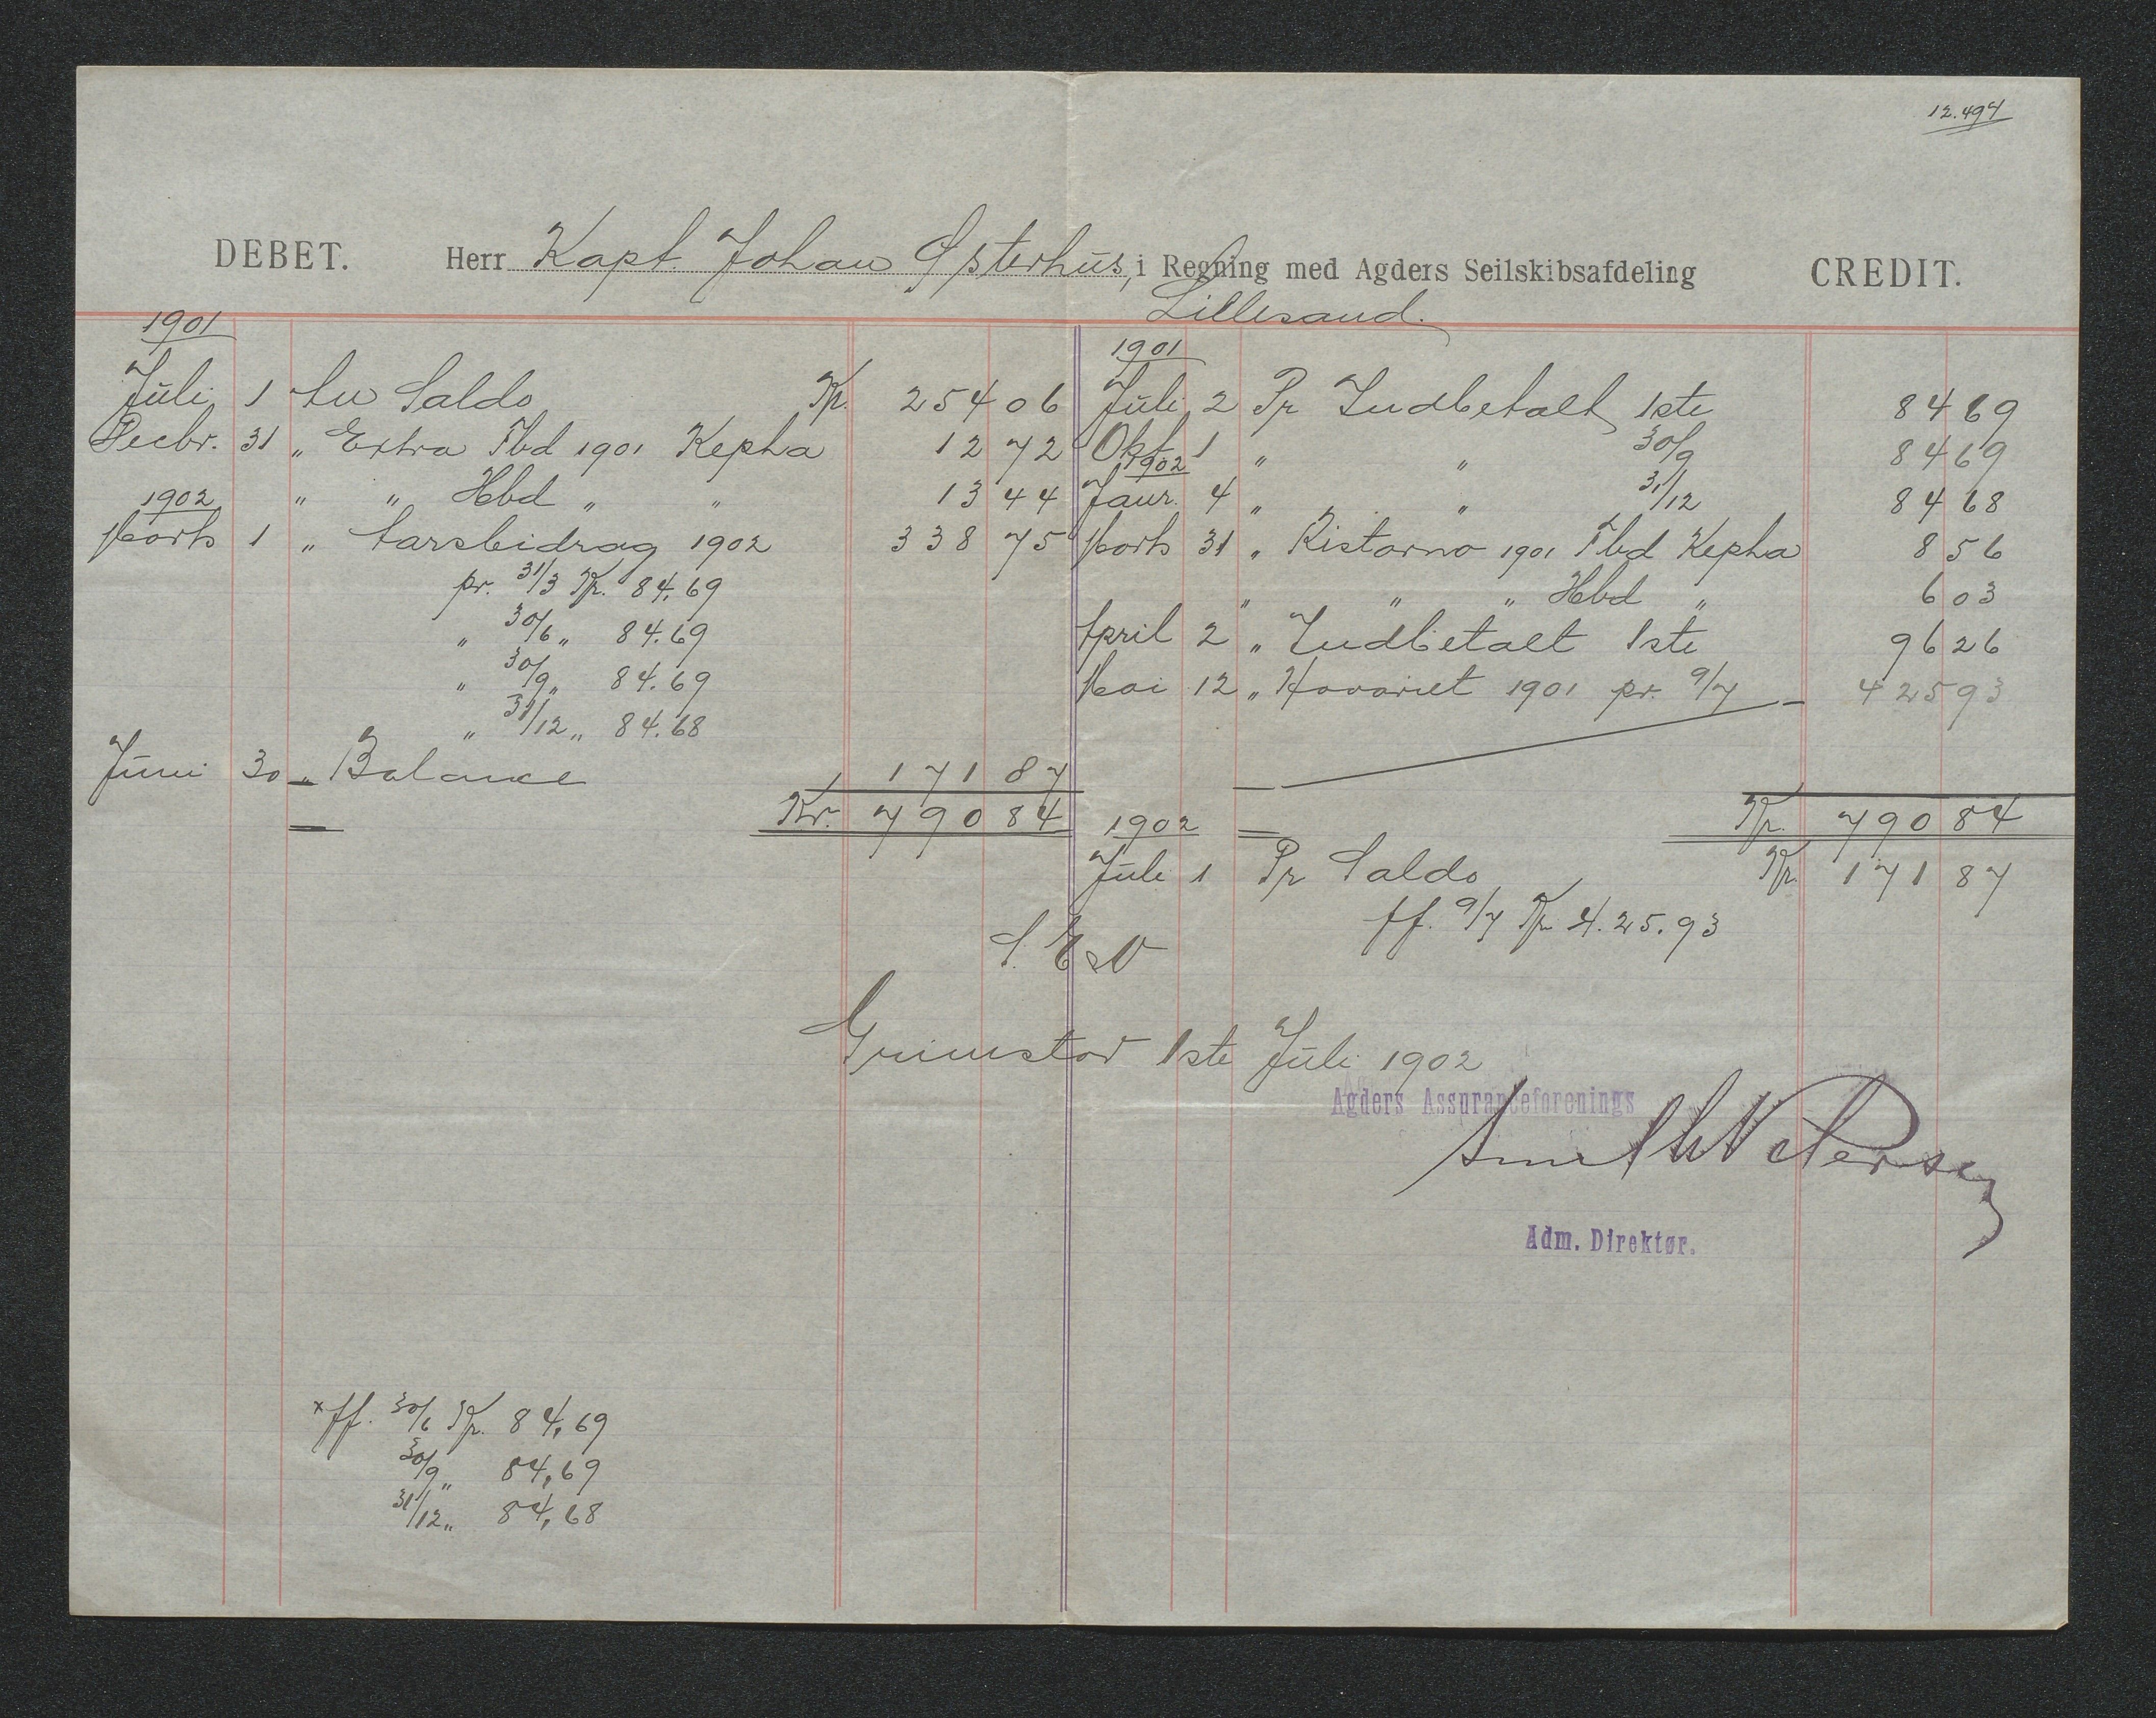 12.494
DEBET. Herr Kapt. Johan Østerhus, i Regning med Agders Seilskibsafdeling CREDIT.
Lillesand.
1901
Juli 1 An Saldo Kr. 254 06
Decbr. 31 " Extra Fbd 1901 Kepha 12 72
" " Hbd " " 13 44
1902
Marts 1 " Aarsbidrag 1902 338 75
pr. 31/3 Kr. 84.69
" 30/6 " 84.69
" 30/9 " 84.69
" 31/12 " 84.68
Juni 30 " Balance 171 87
Kr. 790 84
1901
Juli 2 Pr Indbetalt 1ste 84 69
Okt 1 " " 30/9 84 69
1902
Janr. 4 " " 31/12 84 68
Marts 31 " Ristorno 1901 Fbd Kepha 8 56
" " " Hbd " 6 03
April 2 " Indbetalt 1ste 96 26
Mai 12 " Havariet 1901 pr. 9/7 425 93
Kr. 790 84
1902
Juli 1 Pr Saldo Kr. 171 87
ff. 9/7 Kr 4.25.93
S. E & O
Grimstad 1ste Juli 1902
Agders Assuranceforenings
Adm. Direktør.
x ff. 30/6 Kr. 84,69
30/9 " 84,69
31/12 " 84,68